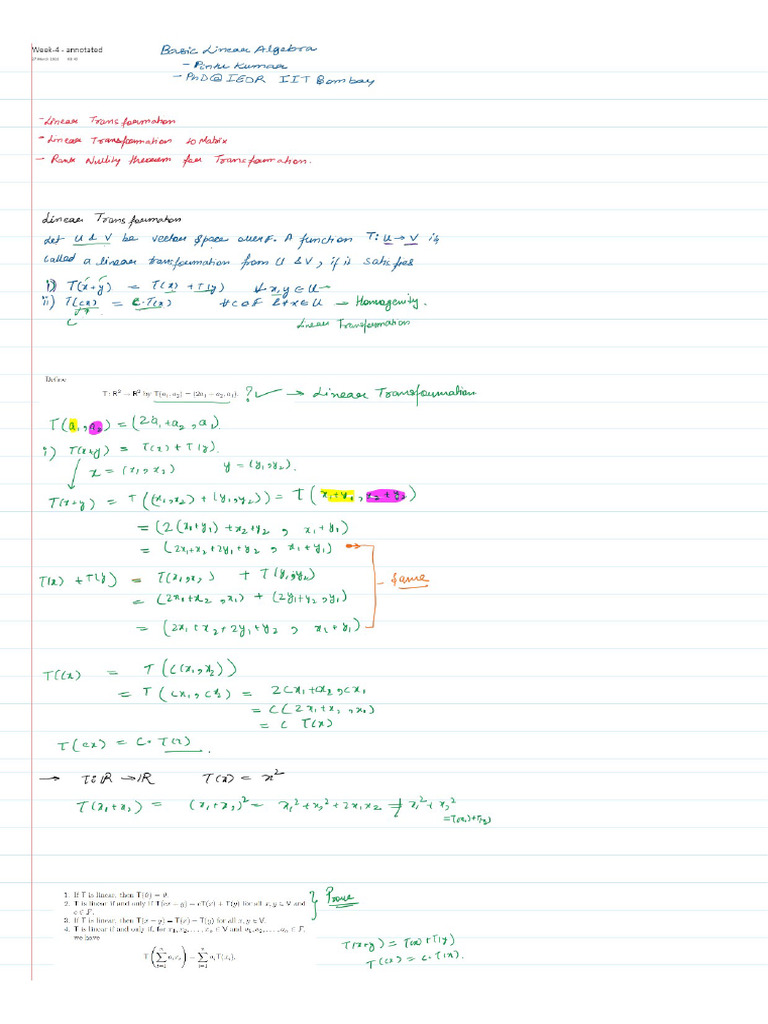 Week-4 - annotated
Basic Linear Algebra
- Pintu Kumar
- PhD@IEOR IIT Bombay
- Linear Transformation
- Linear Transformation to Matrix
- Rank Nullity theorem for Transformation.
Linear Transformation
Let U & V be vector space over F. A function T: U → V is
called a linear transformation from U & V, if it satisfies
i) T(x+y) = T(x) + T(y) ∀ x,y ∈ U
ii) T(cx) = c·T(x) ∀ c ∈ F & ∀ x ∈ U → Homogenity.
Linear Transformation
Define
T: R² → R² by T(a₁, a₂) = (2a₁ + a₂, a₁). ? ✓ → Linear Transformation
T(a₁, a₂) = (2a₁+a₂, a₁)
i) T(x+y) = T(x) + T(y).
x = (x₁, x₂) y = (y₁, y₂).
T(x+y) = T((x₁,x₂) + (y₁,y₂)) = T(x₁+y₁, x₂+y₂)
= (2(x₁+y₁) + x₂+y₂, x₁+y₁)
= (2x₁+x₂+2y₁+y₂, x₁+y₁)
T(x) + T(y) = T(x₁,x₂) + T(y₁,y₂)
- Same
= (2x₁+x₂, x₁) + (2y₁+y₂, y₁)
= (2x₁+x₂+2y₁+y₂, x₁+y₁)
T(cx) = T(c(x₁,x₂))
= T(cx₁, cx₂) = 2cx₁+cx₂, cx₁
= c(2x₁+x₂, x₁)
= c T(x)
T(cx) = c·T(x).
→ T: ℝ → ℝ T(x) = x²
T(x₁+x₂) = (x₁+x₂)² = x₁²+x₂²+2x₁x₂ ≠ x₁²+x₂²
= T(x₁)+T(x₂)
1. If T is linear, then T(0) = 0.
2. T is linear if and only if T(cx + y) = cT(x) + T(y) for all x, y ∈ V and
c ∈ F.
} Prove
3. If T is linear, then T(x − y) = T(x) − T(y) for all x, y ∈ V.
4. T is linear if and only if, for x₁, x₂, . . . , xₙ ∈ V and a₁, a₂, . . . , aₙ ∈ F,
we have
T(∑ᵢ₌₁ⁿ aᵢxᵢ) = ∑ᵢ₌₁ⁿ aᵢT(xᵢ).
T(x+y) = T(x)+T(y)
T(cx) = c·T(x).